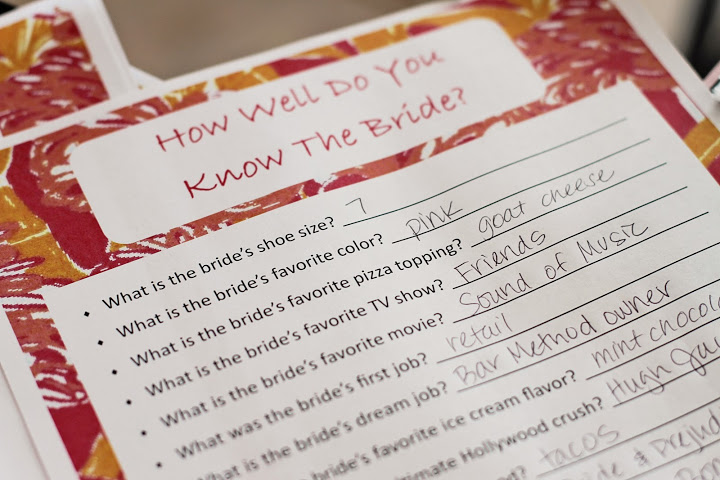 How Well Do You
Know The Bride?
• What is the bride's shoe size? 7
• What is the bride's favorite color? pink
• What is the bride's favorite pizza topping? goat cheese
• What is the bride's favorite TV show? Friends
• What is the bride's favorite movie? Sound of Music
• What was the bride's first job? retail
What is the bride's dream job? Bar Method owner
bride's favorite ice cream flavor? mint
Hollywood crush? Hugh
tacos
&